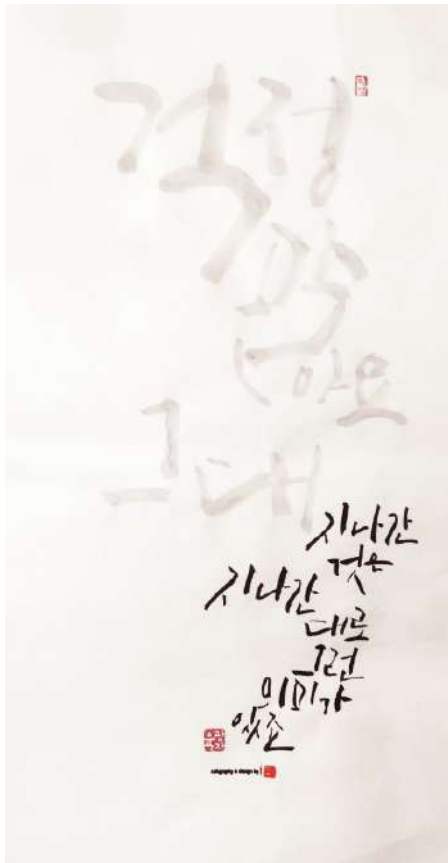 걱정
말
아요
그대
지나간
것은
지나간
대로
그런
의미가
있죠
calligraphy & design by